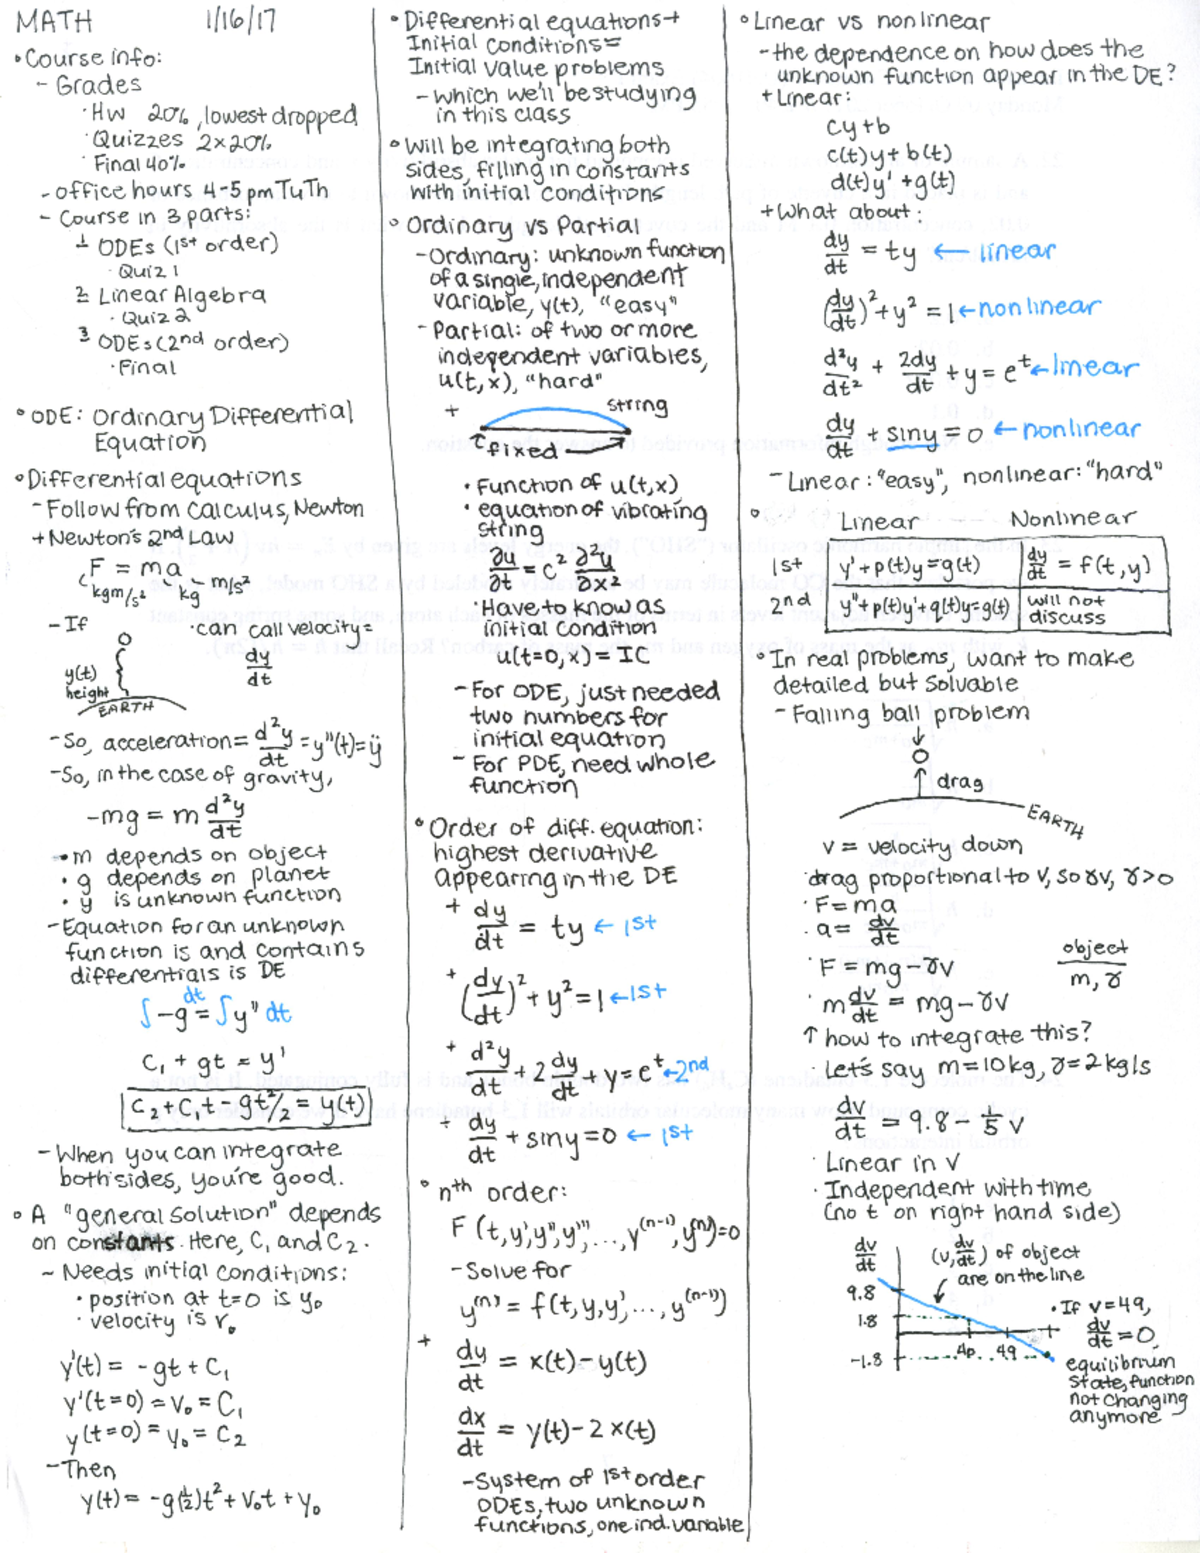 MATH 1/16/17
• Course info:
- Grades
· HW 20%, lowest dropped
· Quizzes 2×20%
· Final 40%
- office hours 4-5pm TuTh
- Course in 3 parts:
1 ODEs (1st order)
· Quiz 1
2 Linear Algebra
· Quiz 2
3 ODEs (2nd order)
· Final
• ODE: Ordinary Differential
Equation
• Differential equations
- Follow from calculus, Newton
+ Newton's 2nd Law
F = ma
kgm/s² kg m/s²
- If
· can call velocity =
dy/dt
y(t)
height
EARTH
- So, acceleration = d²y/dt = y"(t) = ÿ
- So, in the case of gravity,
-mg = m d²y/dt
• m depends on object
• g depends on planet
• y is unknown function
- Equation for an unknown
function is and contains
differentials is DE
∫-g dt = ∫y" dt
C₁ + gt = y'
C₂ + C₁t - gt²/2 = y(t)
- When you can integrate
both sides, you're good.
• A "general solution" depends
on constants. Here, C₁ and C₂.
- Needs initial conditions:
• position at t=0 is y₀
• velocity is v₀
y'(t) = -gt + C₁
y'(t=0) = v₀ = C₁
y(t=0) = y₀ = C₂
- Then
y(t) = -g(½)t² + v₀t + y₀
• Differential equations +
Initial Conditions =
Initial value problems
- which we'll be studying
in this class
• Will be integrating both
sides, filling in constants
with initial conditions
• Ordinary vs Partial
- Ordinary: unknown function
of a single, independent
variable, y(t), "easy"
- Partial: of two or more
independent variables,
u(t,x), "hard"
+ string
fixed
• Function of u(t,x)
• equation of vibrating
string
∂u/∂t = c² ∂²u/∂x²
· Have to know as
initial condition
u(t=0,x) = IC
- For ODE, just needed
two numbers for
initial equation
- For PDE, need whole
function
• Order of diff. equation:
highest derivative
appearing in the DE
+ dy/dt = ty ← 1st
+ (dy/dt)² + y² = 1 ← 1st
+ d²y/dt + 2 dy/dt + y = e^t ← 2nd
+ dy/dt + siny = 0 ← 1st
• nth order:
F(t, y', y", y"', ..., y^(n-1), y^(n)) = 0
- Solve for
y^(n) = f(t, y, y', ..., y^(n-1))
+ dy/dt = x(t) - y(t)
dx/dt = y(t) - 2x(t)
- System of 1st order
ODEs, two unknown
functions, one ind. variable
• Linear vs nonlinear
- the dependence on how does the
unknown function appear in the DE?
+ Linear:
cy+b
c(t)y + b(t)
d(t)y' + g(t)
+ What about:
dy/dt = ty ← linear
(dy/dt)² + y² = 1 ← nonlinear
d²y/dt² + 2dy/dt + y = e^t ← linear
dy/dt + siny = 0 ← nonlinear
- Linear: "easy", nonlinear: "hard"
• Linear Nonlinear
1st y' + p(t)y = g(t) dy/dt = f(t,y)
2nd y" + p(t)y' + q(t)y = g(t) will not
discuss
• In real problems, want to make
detailed but solvable
- Falling ball problem
drag
EARTH
v = velocity down
· drag proportional to v, so γv, γ>0
· F = ma
· a = dv/dt
· F = mg - γv
object
m, γ
· m dv/dt = mg - γv
↑ how to integrate this?
· Let's say m=10kg, γ=2kg/s
dv/dt = 9.8 - 1/5 v
· Linear in v
· Independent with time
(no t on right hand side)
dv/dt
(v, dv/dt) of object
are on the line
9.8
1.8
-1.8
40 49
• If v=49,
dv/dt = 0,
equilibrium
state, function
not changing
anymore